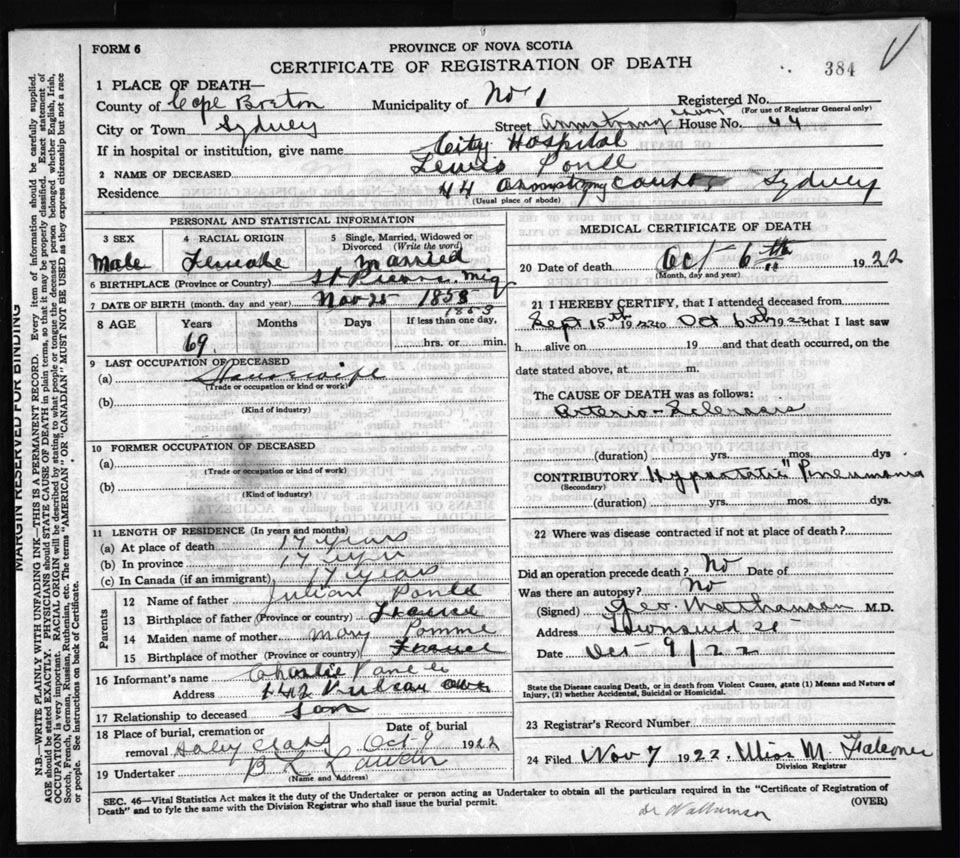 FORM 6
PROVINCE OF NOVA SCOTIA
CERTIFICATE OF REGISTRATION OF DEATH
384
1 PLACE OF DEATH—
County of Cape Breton Municipality of No 1 Registered No.
(For use of Registrar General only)
City or Town Sydney Street Armstrong Court House No. 44
If in hospital or institution, give name City Hospital
2 NAME OF DECEASED Lewis
Residence 44 Armstrong Court Sydney
(Usual place of abode)
PERSONAL AND STATISTICAL INFORMATION
3 SEX 4 RACIAL ORIGIN 5 Single, Married, Widowed or Divorced (Write the word)
Male married
6 BIRTHPLACE (Province or Country) St Pierre Miq
7 DATE OF BIRTH (month, day and year) Nov 25 1853
1853
8 AGE Years Months Days If less than one day,
69 hrs. or min.
9 LAST OCCUPATION OF DECEASED
(a)
(Trade or occupation or kind of work)
(b)
(Kind of industry)
10 FORMER OCCUPATION OF DECEASED
(a)
(Trade or occupation or kind of work)
(b)
(Kind of industry)
11 LENGTH OF RESIDENCE (In years and months)
(a) At place of death 17 years
(b) In province 17 years
(c) In Canada (if an immigrant) 17 years
Parents
12 Name of father Julian
13 Birthplace of father (Province or country) France
14 Maiden name of mother Mary Pomme
15 Birthplace of mother (Province or Country) France
16 Informant's name Charlie
Address Vulcan Ave
17 Relationship to deceased Son
18 Place of burial, cremation or removal Holy Cross Date of burial Oct 9 1922
19 Undertaker B L
(Name and Address)
MEDICAL CERTIFICATE OF DEATH
20 Date of death Oct 6th 1922
(Month, day and year)
21 I HEREBY CERTIFY, that I attended deceased from
Sept 15th 1922 to Oct 6th 1922 that I last saw
h alive on 19 and that death occurred, on the
date stated above, at m.
The CAUSE OF DEATH was as follows:
Arterio-Sclerosis
(duration) yrs. mos. dys
CONTRIBUTORY Hypostatic Pneumonia
(Secondary)
(duration) yrs. mos. dys.
22 Where was disease contracted if not at place of death?
Did an operation precede death? No Date of
Was there an autopsy? No
(Signed) Geo. M.D.
Address Townsend St
Date Oct 9/22
State the Disease causing Death, or in death from Violent Causes, state (1) Means and Nature of
Injury, (2) whether Accidental, Suicidal or Homicidal.
23 Registrar's Record Number
24 Filed Nov 7 1922. Miss M. Falconer
Division Registrar
SEC. 46—Vital Statistics Act makes it duty of the Undertaker or person acting as Undertaker to obtain all the particulars required in the "Certificate of Registration of
Death" and to fyle the same with the Division Registrar who shall issue the burial permit.
(OVER)
MARGIN RESERVED FOR BINDING
N.B.—WRITE PLAINLY WITH UNFADING INK—THIS IS A PERMANENT RECORD. Every item of information should be carefully supplied.
AGE should be stated EXACTLY. PHYSICIANS should STATE CAUSE OF DEATH in plain terms, so that it may be properly classified. Exact statement of
OCCUPATION is very important. RACIAL ORIGIN will be described by stating to what people or tongue the deceased person belonged whether English, Irish,
Scotch, French, German, Russian, Ruthenian, etc. The terms "AMERICAN" or "CANADIAN" MUST NOT BE USED as they express citizenship but not a race
or people. See instructions on back of Certificate.